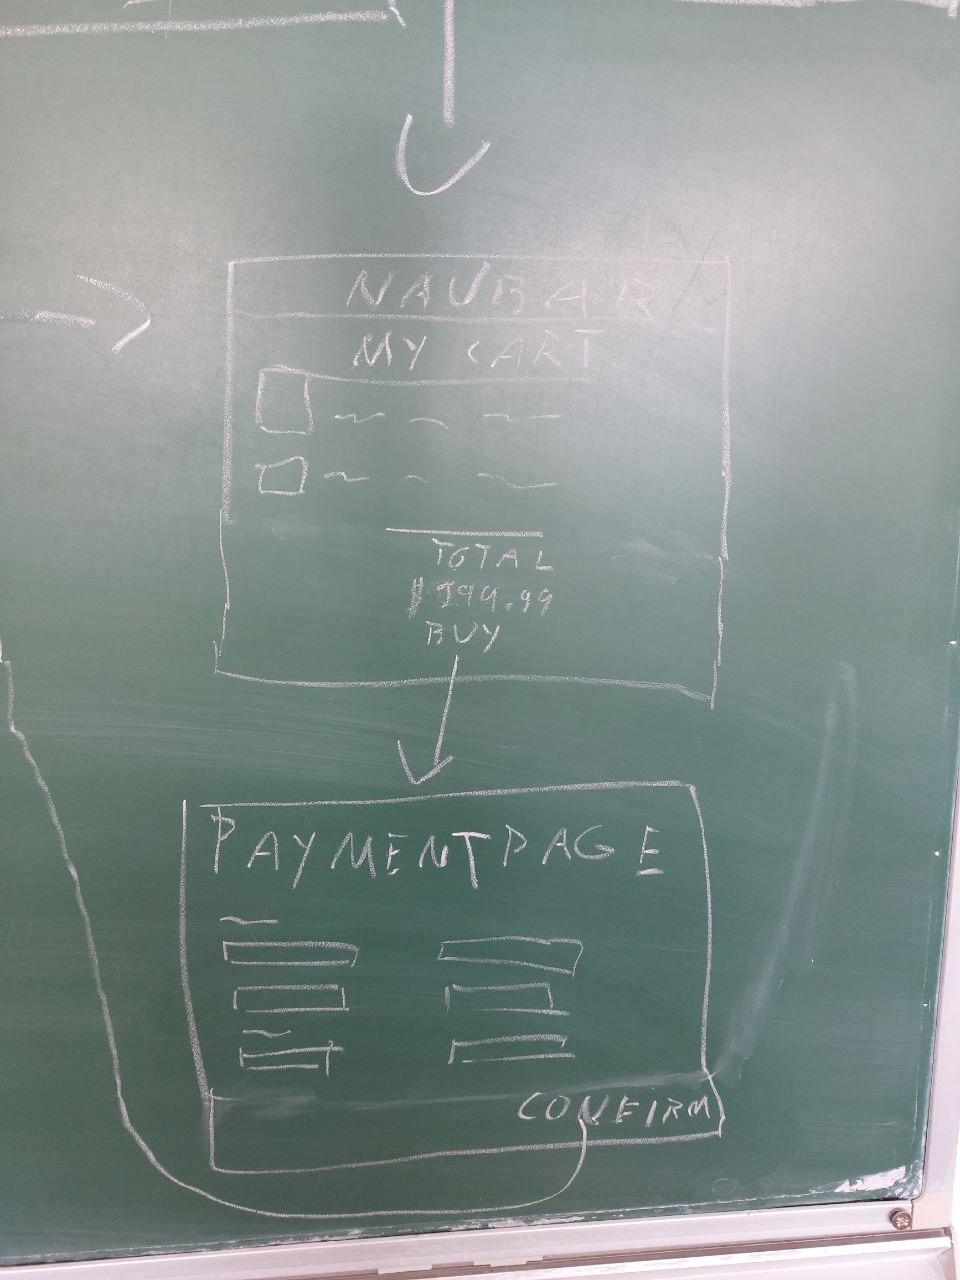 NAVBAR
MY CART
TOTAL
$999.99
BUY
PAYMENT PAGE
CONFIRM